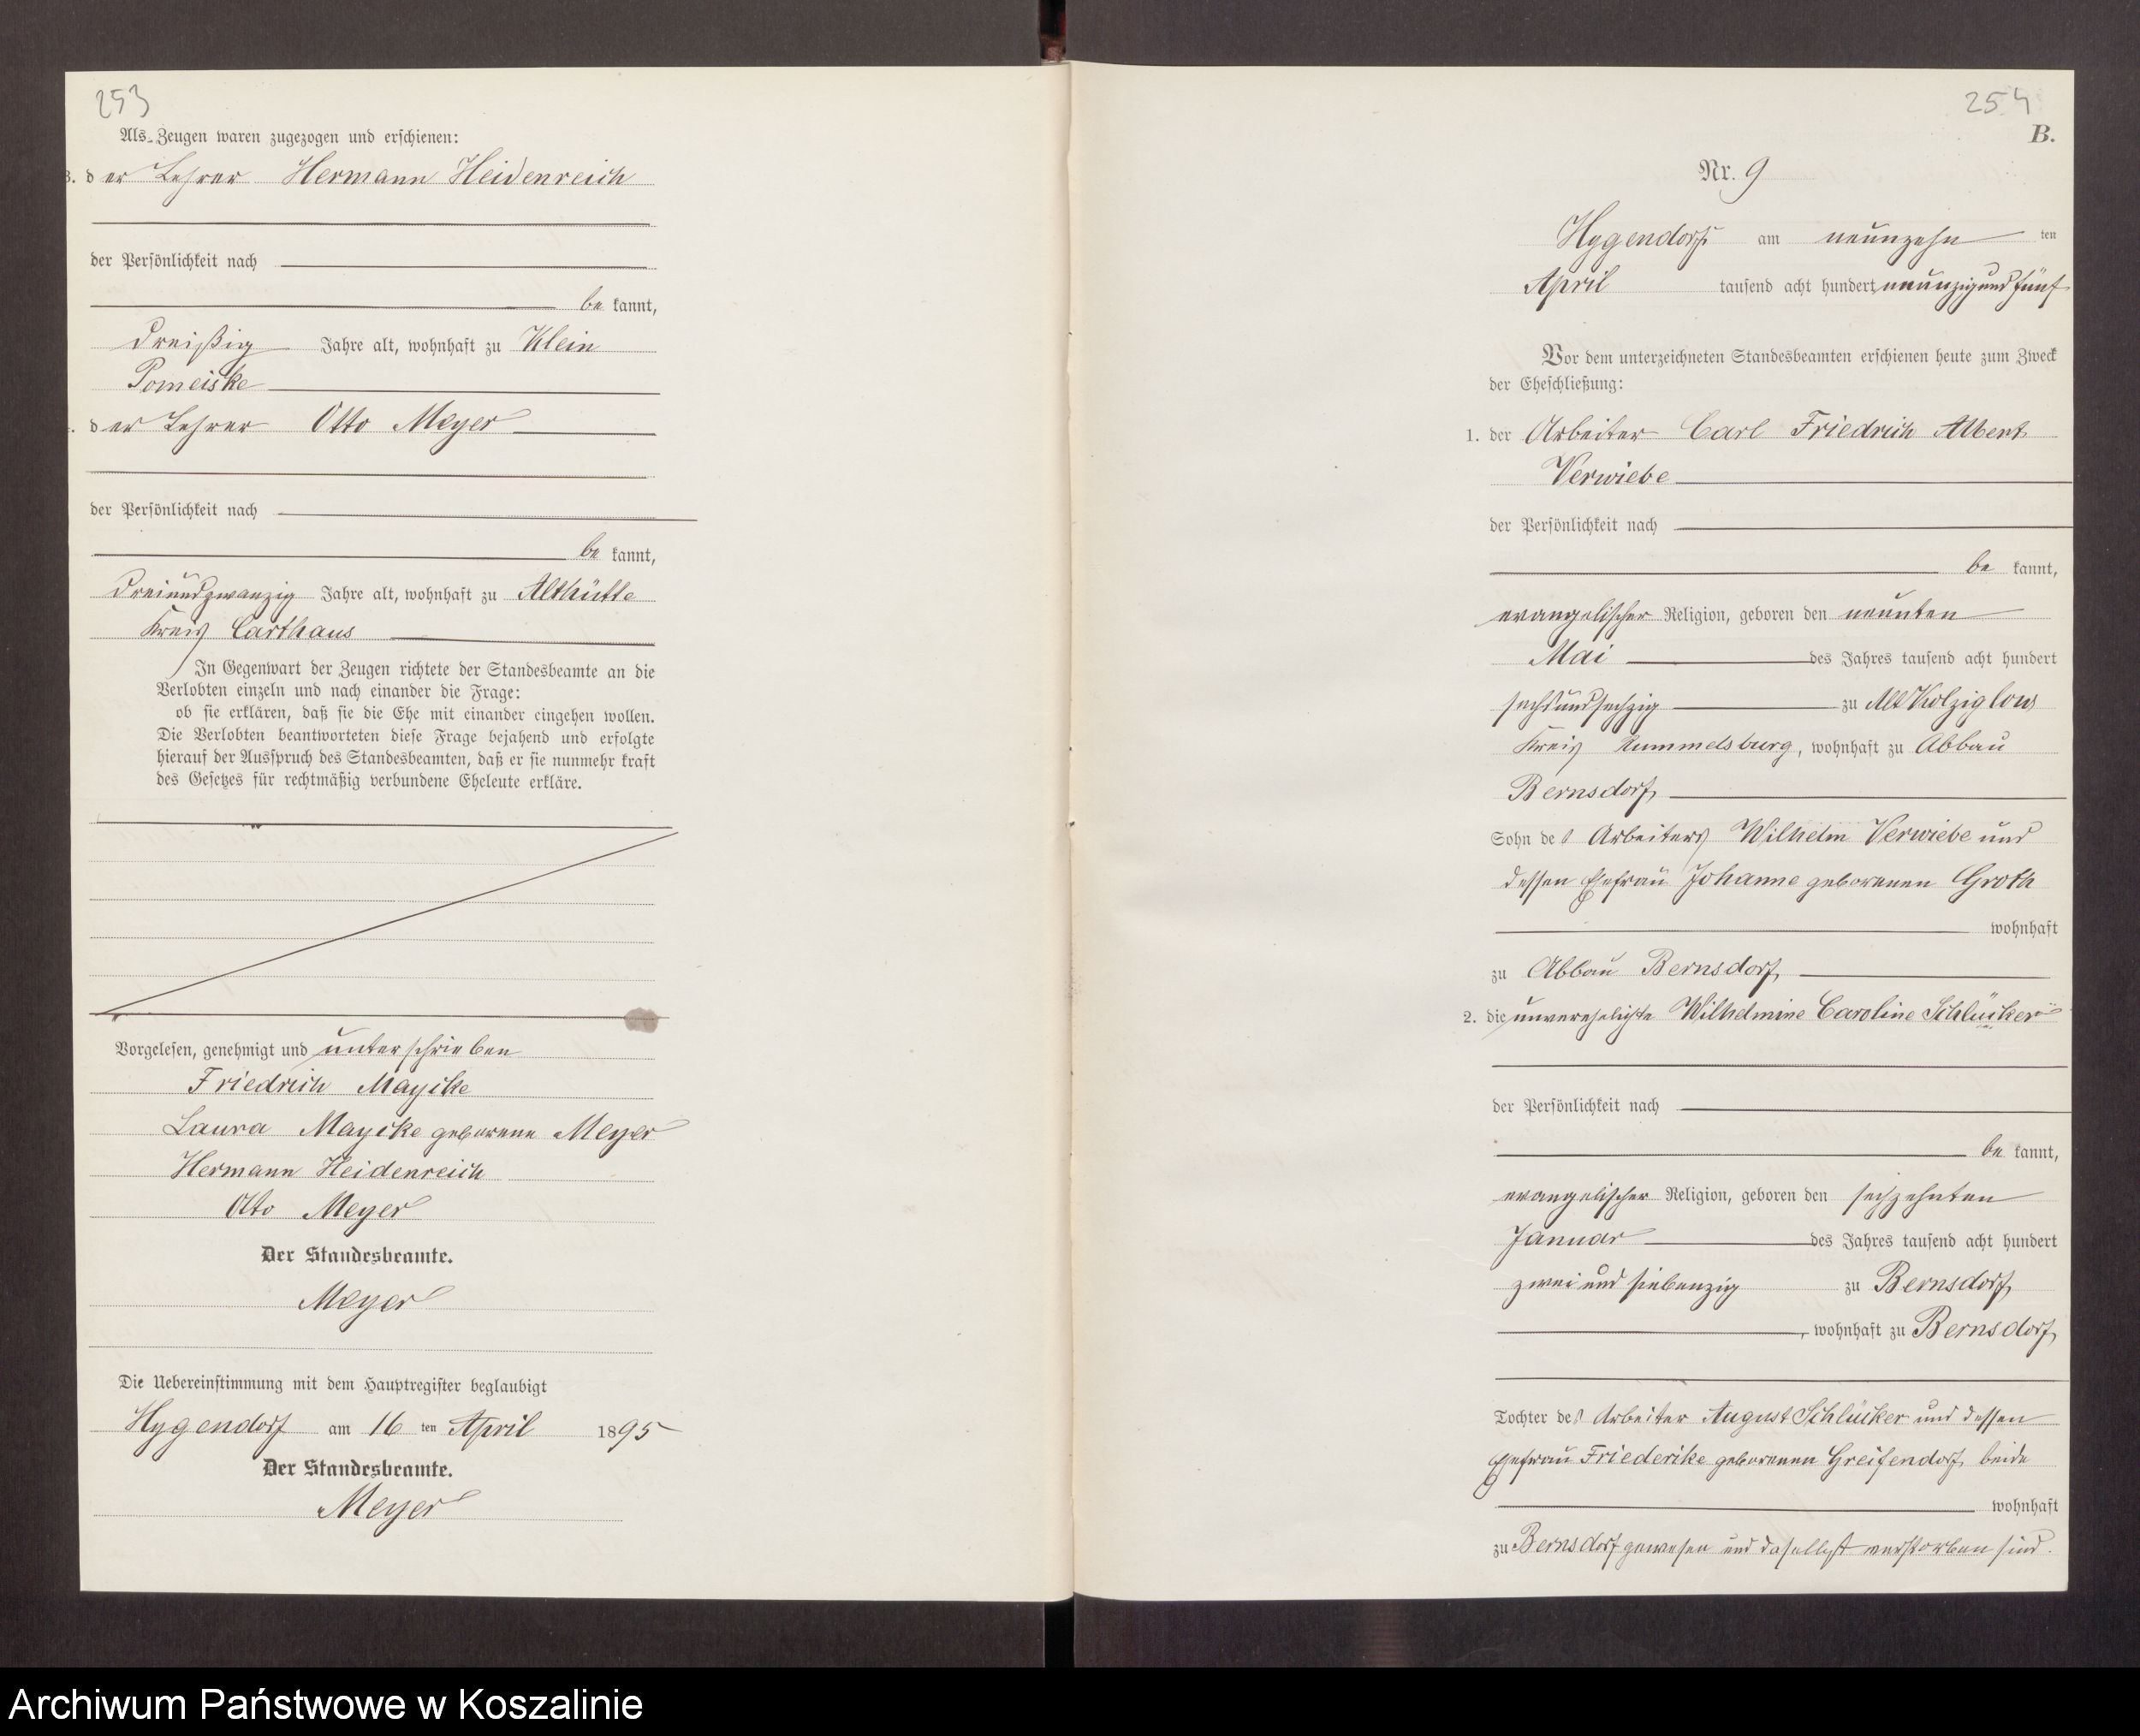 253
Als Zeugen waren zugezogen und erschienen:
3. der Lehrer Hermann Heidenreich
der Persönlichkeit nach
be kannt,
dreißig Jahre alt, wohnhaft zu Klein
Pomeiske
der Lehrer Otto Meyer
der Persönlichkeit nach
be kannt,
dreiundzwanzig Jahre alt, wohnhaft zu Althütte
Kreis Carthaus
In Gegenwart der Zeugen richtete der Standesbeamte an die
Verlobten einzeln und nach einander die Frage:
ob sie erklären, daß sie die Ehe mit einander eingehen wollen.
Die Verlobten beantworteten diese Frage bejahend und erfolgte
hierauf der Ausspruch des Standesbeamten, daß er sie nunmehr kraft
des Gesetzes für rechtmäßig verbundene Eheleute erkläre.
Vorgelesen, genehmigt und unterschrieben
Friedrich
Laura geborene Meyer
Hermann Heidenreich
Otto Meyer
Der Standesbeamte.
Meyer
Die Uebereinstimmung mit dem Hauptregister beglaubigt
Hygendorf am 16 ten April 1895
Der Standesbeamte.
Meyer
254
B.
Nr. 9
Hygendorf am neunzehn ten
April tausend acht hundert neunzig und fünf
Vor dem unterzeichneten Standesbeamten erschienen heute zum Zweck
der Eheschließung:
1. der Arbeiter Carl Friedrich Albert
Verwiebe
der Persönlichkeit nach
be kannt,
evangelischer Religion, geboren den neunten
Mai des Jahres tausend acht hundert
sechsundsechzig zu Alt Kolziglow
Kreis Rummelsburg, wohnhaft zu Abbau
Bernsdorf,
Sohn des Arbeiters Wilhelm Verwiebe und
dessen Ehefrau Johanne geborenen Groth
wohnhaft
zu Abbau Bernsdorf,
2. die unverehelichte Wilhelmine Caroline Schlücker
der Persönlichkeit nach
be kannt,
evangelischer Religion, geboren den sechzehnten
Januar des Jahres tausend acht hundert
zwei und siebenzig zu Bernsdorf,
, wohnhaft zu Bernsdorf,
Tochter des Arbeiter August Schlücker und dessen
Ehefrau Friederike geborenen Greifendorf, beide
wohnhaft
zu Bernsdorf gewesen und daselbst verstorben sind.
Archiwum Państwowe w Koszalinie